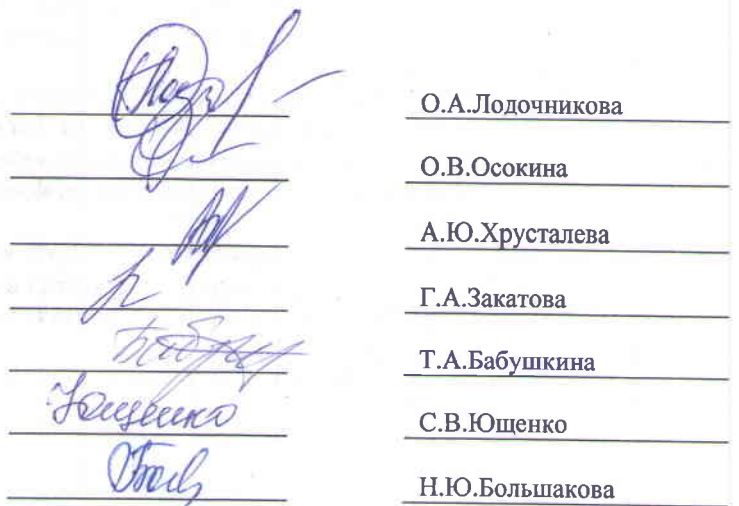 О.А.Лодочникова
О.В.Осокина
А.Ю.Хрусталева
Г.А.Закатова
Т.А.Бабушкина
Ющенко С.В.Ющенко
Н.Ю.Большакова